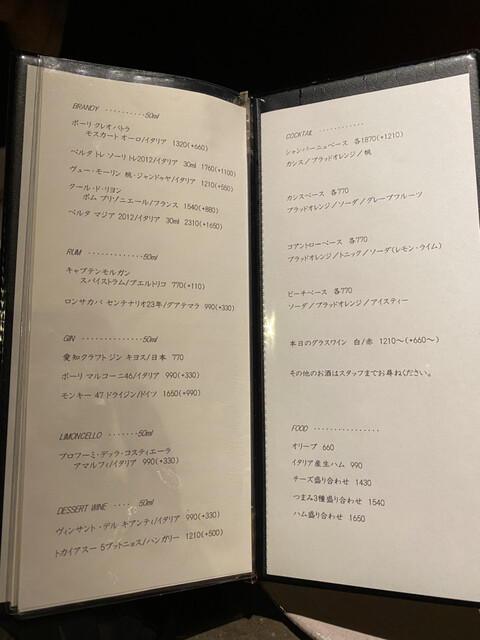 BRANDY ..........50ml
ポーリ クレオパトラ
モスカート オーロ/イタリア 1320(+660)
ベルタ トレ・ソーリ トレ2012/イタリア 30ml 1760(+1100)
ヴュー・モーリン 桃・ジャンドゥヤ/イタリア 1210(+550)
クール・ド・リヨン
ポム プリゾニエール/フランス 1540(+880)
ベルタ マジア 2012/イタリア 30ml 2310(+1650)
RUM ............50ml
キャプテンモルガン
スパイストラム/プエルトリコ 770(+110)
ロンサカパ センテナリオ23年/グアテマラ 990(+330)
GIN ............50ml
愛知クラフトジン キヨス/日本 770
ポーリ マルコーニ46/イタリア 990(+330)
モンキー 47 ドライジン/ドイツ 1650(+990)
LIMONCELLO ........50ml
プロフーミ・デッラ・コスティエーラ
アマルフィ/イタリア 990(+330)
DESSERT WINE .... 50ml
ヴィンサント・デル キアンティ/イタリア 990(+330)
トカイアスー 5プットニョス/ハンガリー 1210(+500)
COCKTAIL ............
シャンパーニュベース 各1870(+1210)
カシス/ブラッドオレンジ/桃
カシスベース 各770
ブラッドオレンジ/ソーダ/グレープフルーツ
コアントローベース 各770
ブラッドオレンジ/トニック/ソーダ(レモン・ライム)
ピーチベース 各770
ソーダ/ブラッドオレンジ/アイスティー
本日のグラスワイン 白/赤 1210〜(+660〜)
その他のお酒はスタッフまでお尋ねください。
FOOD ................
オリーブ 660
イタリア産生ハム 990
チーズ盛り合わせ 1430
つまみ3種盛り合わせ 1540
ハム盛り合わせ 1650